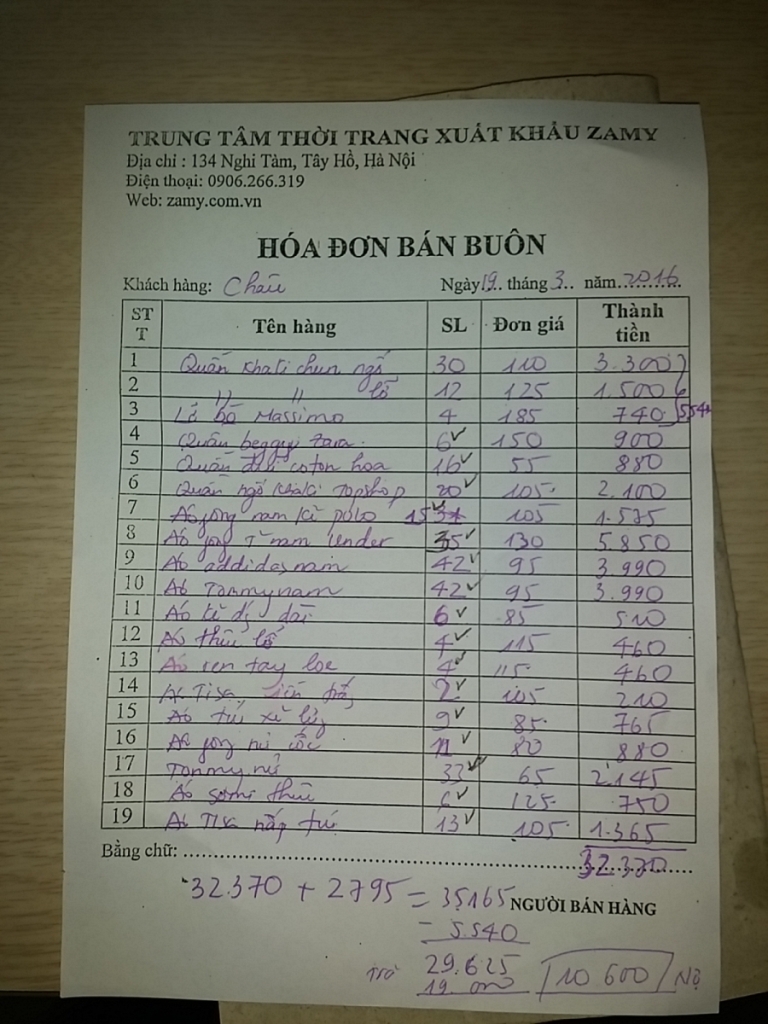 TRUNG TÂM THỜI TRANG XUẤT KHẨU ZAMY
Địa chỉ : 134 Nghi Tàm, Tây Hồ, Hà Nội
Điện thoại: 0906.266.319
Web: zamy.com.vn
HÓA ĐƠN BÁN BUÔN
Khách hàng: Châu Ngày 19 tháng 3 năm 2016
STT Tên hàng SL Đơn giá Thành tiền
1 Quần khaki chun ngố 30 110 3.300
2 " " lỡ 12 125 1.500
3 Massimo 4 185 740 554
4 Quần baggy zara 6 150 900
5 Quần coton hoa 16 55 880
6 Quần ngố khaki Topshop 20 105 2.100
7 Áo nam kẻ polo 15 105 1.575
8 Áo nam under 130 5.850
9 Áo addidas nam 42 95 3.990
10 Áo Tommy nam 42 95 3.990
11 Áo kẻ dài 6 85 510
12 Áo thêu 4 115 460
13 Áo ren tay loe 4 115 460
14 2 105 210
15 Áo túi 9 85 765
16 Áo nữ 11 80 880
17 Tommy nữ 33 65 2.145
18 Áo sơmi thêu 6 125 750
19 Áo nắp túi 13 105 1.365
Bằng chữ: 32.370
32.370 + 2795 = 35165 NGƯỜI BÁN HÀNG
- 5.540
29.625 10 600 Nợ
trả 19.000